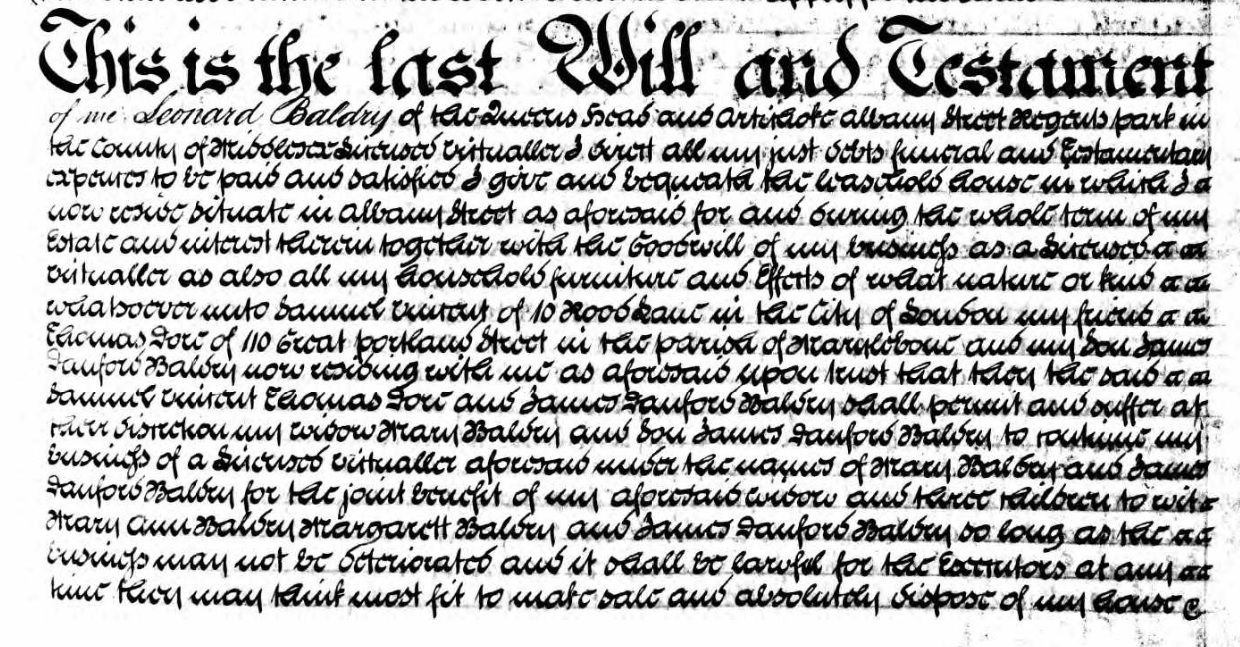 This is the last Will and Testament
of me Leonard Baldry of the Queens Head and Artichoke Albany Street Regents park in
the County of Middlesex Licensed Victualler I direct all my just debts funeral and Testamentary
expences to be paid and satisfied I give and bequeath the leasehold house in which I
now reside situate in Albany Street as aforesaid for and during the whole term of my
Estate and interest therein together with the Goodwill of my business as a Licensed
Victualler as also all my household furniture and Effects of what nature or kind
whatsoever unto Samuel Vincent of 10 Rood Lane in the City of London my friend
Thomas Dore of 110 Great portland Street in the parish of Marylebone and my Son James
Danford Baldry now residing with me as aforesaid upon trust that they the said
Samuel Vincent Thomas Dore and James Danford Baldry shall permit and suffer at
their discretion my widow Mary Baldry and Son James Danford Baldry to continue my
business of a Licensed Victualler aforesaid under the names of Mary Baldry and James
Danford Baldry for the joint benefit of my aforesaid widow and three children to wit
Mary Ann Baldry Margarett Baldry and James Danford Baldry so long as the
business may not be deteriorated and it shall be lawful for the Executors at any
time they may think most fit to make sale and absolutely dispose of my house